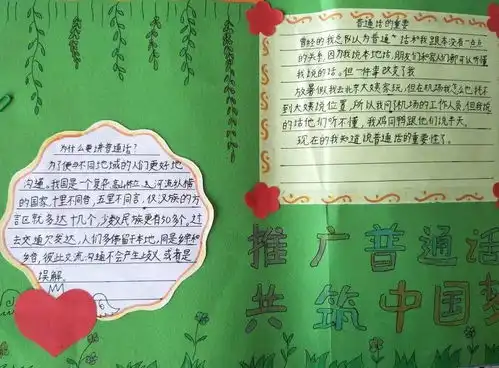 普通话的重要
曾经的我总以为普通话和我跟本没有一点点
的关系，因为我说本地话，朋友们和家人们都可以听懂
我说的话。但一件事改变了我
放暑假我去北京大姨家玩，但在机场我怎么也找不
到大姨说位置，所以我问机场的工作人员，但我说
的话他们听不懂，我鸡同鸭跟他们说半天。
现在的我知道说普通话的重要性了。
为什么要讲普通话？
为了使不同地域的人们更好地
沟通。我国是一个
河流纵横
的国家，十里不同音，五里不同言，仅汉族的方
言区就多达十九个，少数民族更有50多个，过
去交通欠发达，人们多停留于本地，同是乡亲和
乡音，彼此交流沟通不会产生歧义或有是
误解。
推广普通话
共筑中国梦